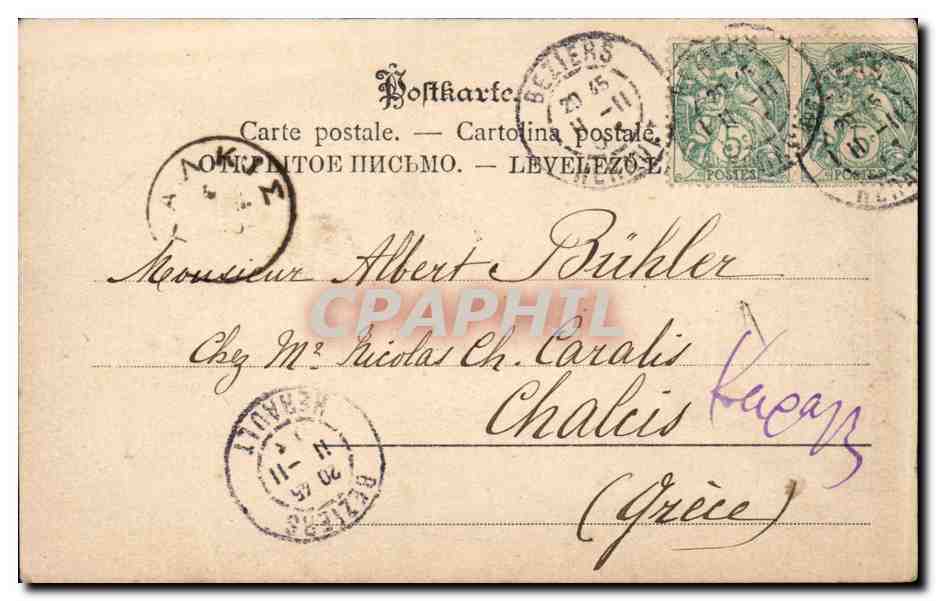 Postkarte.
Carte postale. — Cartolina postale.
ОТКРЫТОЕ ПИСЬМО. — LEVELEZŐ-L
BEZIERS
20 45
11 -11
HERAULT
5c
POSTES
5c
POSTES
ΧΑΛΚΙΣ
Monsieur Albert Bühler
CPAPHIL
Chez Mr Nicolas Ch. Caralis
Chalcis
(Grèce)
BEZIERS
20 45
11 -11
HERAULT